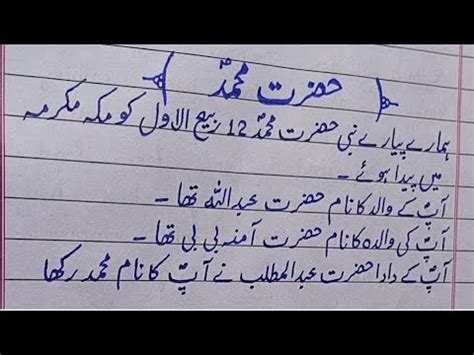 حضرت محمدؐ
ہمارے پیارے نبی حضرت محمدؐ 12 ربیع الاول کو مکہ مکرمہ
میں پیدا ہوئے ۔
آپؐ کے والد کا نام حضرت عبداللہ تھا ۔
آپؐ کی والدہ کا نام حضرت آمنہ بی بی تھا ۔
آپؐ کے دادا حضرت عبدالمطلب نے آپؐ کا نام محمد رکھا